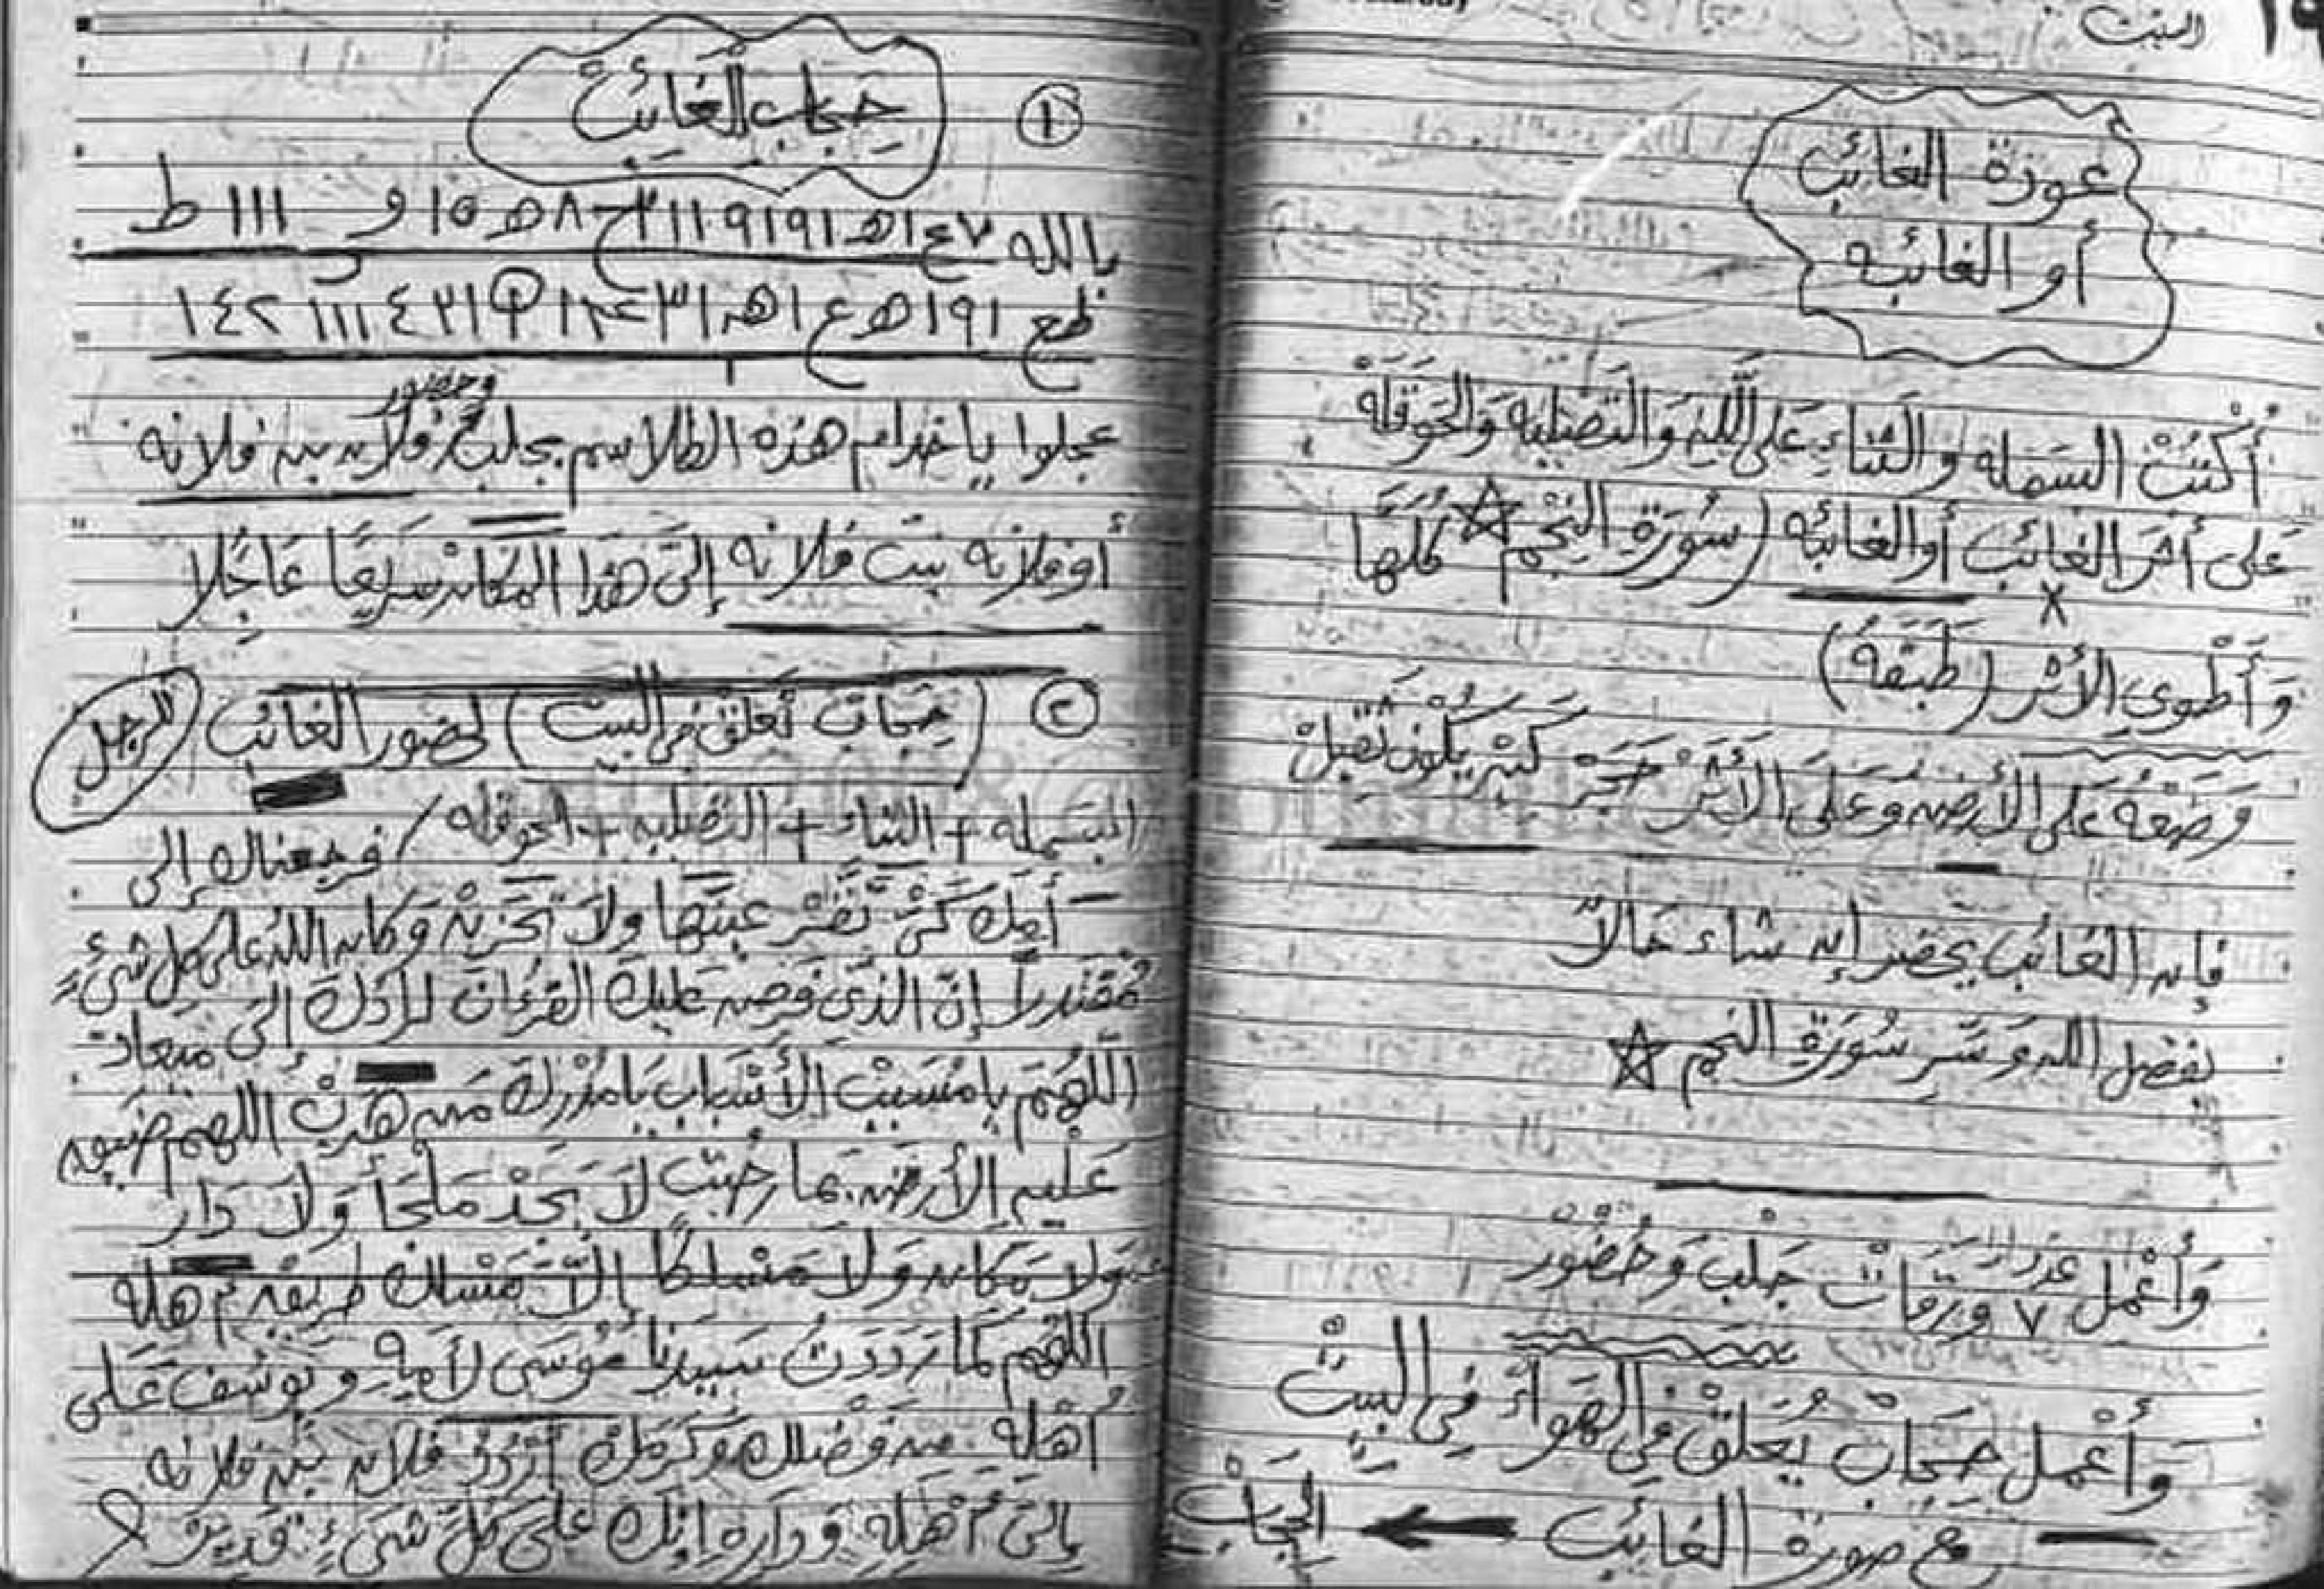 السبت
عودة الغائب
أو الغائبه
أكتب البسمله والثناء على الله والتصليه والحوقله
على أثر الغائب أو الغائبه (سورة النجم كلها
وأطوي الأثر (طبقه)
وضعه على الأرض وعلى الأثر حجر كبير يكون ثقيل
فإن الغائب يحضر إن شاء حالاً
بفضل الله وسر سورة النجم
وأعمل عدد ٧ ورقات جلب وحضور
وأعمل حجاب يعلق في الهواء في البيت
مع صورة الغائب
الحجاب
١
حجاب الغائب
بالله
عجلوا يا خدام هذه الطلاسم بجلب وحضور فلان بن فلانه
أو فلانه بنت فلانه إلى هذا المكان سريعا عاجلا
٢ (حجاب تعلق في البيت) لحضور الغائب للرجل
البسمله + الثناء + التصليه + الحوقله / فرجعناك إلى
أمك كي تقر عينها ولا تحزن وكان الله على كل شيء
مقتدراً إن الذي فرض عليك القرءان لرادك إلى معاد
اللهم يا مسبب الأسباب يا مدرك من هرب اللهم ضيق
عليه الأرض بما رحبت لا يجد ملجأ ولا دار
ولا مكان ولا مسلكاً إلا مسلك طريق أهله
اللهم كما رددت سيدنا موسى لأمه ويوسف على
أهله من فضلك وكرمك أردد فلان بن فلانه
إلى أهله وداره إنك على كل شيء قدير